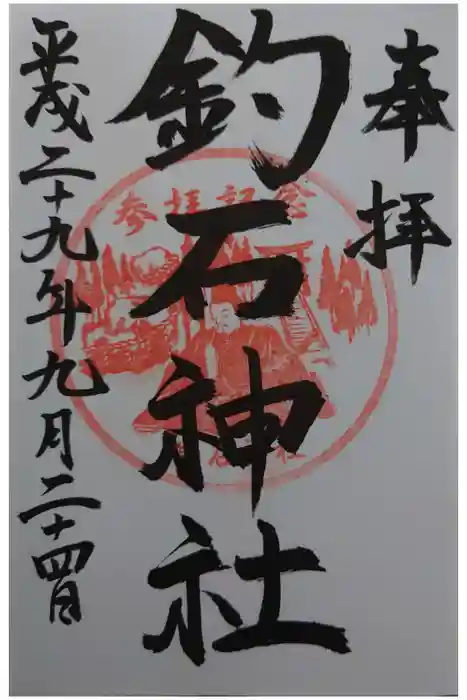 奉拝
釣石神社
平成二十九年九月二十四日
参拝記念
釣石神社